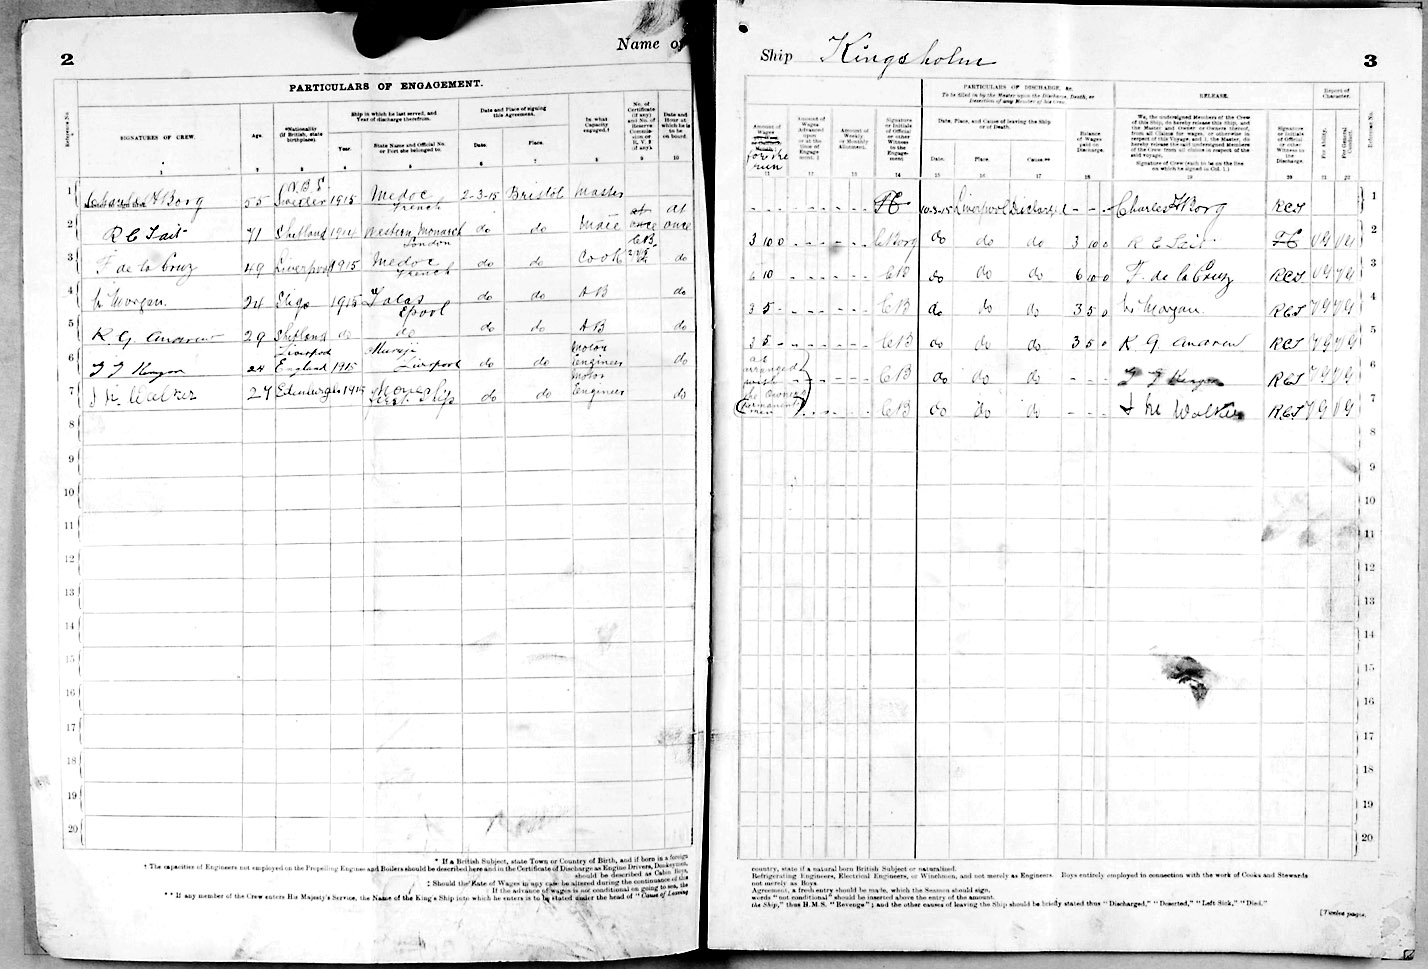 2
Name of
PARTICULARS OF ENGAGEMENT.
Reference No.
SIGNATURES OF CREW.
Age.
*Nationality (if British, state birthplace).
Ship in which he last served, and Year of discharge therefrom.
Year.
State Name and Official No. or Port she belonged to.
Date and Place of signing this Agreement.
Date.
Place.
In what Capacity engaged.†
No. of Certificate (if any) and No. of Reserve Commission or R.V.2 (if any).
Date and Hour at which he is to be on board.
1 2 3 4 5 6 7 8 9 10
1 Borg 55 Sweden 1915 Medoc French 2-3-15 Bristol Master
2 R C Tait 71 Shetland 1914 Western Monarch London do do Mate at once at once
3 F de la Cruz 49 Liverpool 1915 Medoc French do do Cook do
4 Morgan 24 Sligo 1915 Lpool do do AB do
5 R G Andrew 29 Shetland do do do do AB do
6 24 Liverpool England 1915 Liverpool do do Motor Engineer do
7 Walker 27 Edenburgh 1915 First Ship do do Motor Engineer do
8
9
10
11
12
13
14
15
16
17
18
19
20
* If a British Subject, state Town or Country of Birth, and if born in a foreign
† The capacities of Engineers not employed on the Propelling Engines and Boilers should be described here and in the Certificate of Discharge as Engine Drivers, Donkeymen,
should be described as Cabin Boys,
‡ Should the Rate of Wages in any case be altered during the continuance of this
If the advance of wages is not conditional on going to sea, the
** If any member of the Crew enters His Majesty's Service, the Name of the King's Ship into which he enters is to be stated under the head of "Cause of Leaving
Ship Kingsholm
3
PARTICULARS OF DISCHARGE, &c.
To be filled in by the Master upon the Discharge, Death, or Desertion of any Member of his Crew.
RELEASE.
Report of Character.
Amount of Wages
for the run
Amount of Wages Advanced upon or at the time of Engagement.‡
Amount of Weekly or Monthly Allotment.
Signature or Initials of Official or other Witness to the Engagement
Date, Place, and Cause of leaving the Ship or of Death.
Date.
Place.
Cause**
Balance of Wages paid on Discharge.
We, the undersigned Members of the Crew of this Ship, do hereby release this Ship, and the Master and Owner or Owners thereof, from all Claims for wages, or otherwise in respect of this Voyage, and I, the Master, do hereby release the said undersigned Members of the Crew from all claims in respect of the said voyage.
Signature of Crew (each to be on the line on which he signed in Col. 1.)
Signature or Initials of Official or other Witness to the Discharge.
For Ability.
For General Conduct.
Reference No.
11 12 13 14 15 16 17 18 19 20 21 22
10-3-15 Liverpool Discharged - - - Charles A Borg RCT 1
3 10 0 - - - - - - C Borg do do do 3 10 0 R C Tait VG VG 2
6 10 - - - - - - CB do do do 6 10 0 F. de la Cruz RCT VG VG 3
3 5 - - - - - - CB do do do 3 5 0 Morgan RCT VG VG 4
3 5 - - - - - - CB do do do 3 5 0 R G Andrew RCT VG VG 5
as arranged with the Owners CB do do do - - RCT VG VG 6
(permanent men) CB do do do - - - Walker RCT VG VG 7
8
9
10
11
12
13
14
15
16
17
18
19
20
country, state if a natural born British Subject or naturalized.
Refrigerating Engineers, Electrical Engineers, or Winchmen, and not merely as Engineers Boys entirely employed in connection with the work of Cooks and Stewards
not merely as Boys
Agreement, a fresh entry should be made, which the Seaman should sign.
words "not conditional" should be inserted above the entry of the amount.
the Ship," thus H.M.S. "Revenge"; and the other causes of leaving the Ship should be briefly stated thus "Discharged," "Deserted," "Left Sick," "Died."
[Twelve pages.